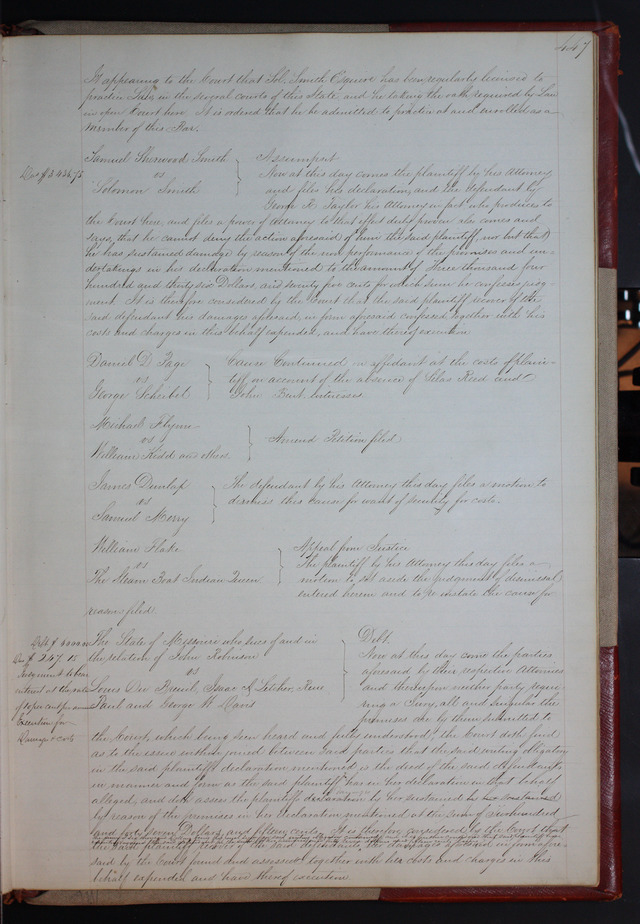 447
It appearing to the Court that Sol. Smith Esquire has been regularly licensed to
practice Law in the several courts of this State and he taking the oath required by Law
in open Court here. It is ordered that he be admitted to practice at and enrolled as a
member of this Bar.
Samuel Sherwood Smith
vs
Solomon Smith
Dam $3436.75
Assumpsit
Now at this day comes the plaintiff by his Attorney
and files his declaration, and the defendant by
George R. Taylor his Attorney in fact who produces to
the Court here and files a power of attorney to that effect duly proven also comes and
says, that he cannot deny the action aforesaid of him the said plaintiff, nor but that
he has sustained damage by reason of the non performance of the promises and un-
dertakings in his declaration mentioned to the amount of Three thousand four
hundred and thirty six Dollars, and seventy five cents for which sum he confesses judg-
ment. It is therefore considered by the Court that the said plaintiff recover of the
said defendant his damages aforesaid, in form aforesaid confessed together with his
costs and charges in this behalf expended, and have thereof execution
Daniel D Page
vs
George Scheibel
Cause Continued on affidavit at the costs of plain-
tiff on account of the absence of Silas Reed and
John Bent witnesses
Michael Flynn
vs
William Kidd and others
Amend Petition filed
James Dunlap
vs
Samuel Merry
The defendant by his Attorney this day files a motion to
dismiss this cause for want of security for costs
William Flake
vs
The Steam Boat Indian Queen
Appeal from Justice
The plaintiff by his Attorney this day files a
motion to set aside the judgment of dismissal
entered herein and to re instate the cause for
reasons filed
The State of Missouri who sues of and in
the relation of John Robinson
vs
Louis Dubreuil, Isaac J Letcher, Rene
Paul and George W Davis
Dam $247.15
Judgment to bear
interest at the rate
of 10 per cent per annum
Execution for
Damage & Costs
Debt
Now at this day come the parties
aforesaid by their respective Attornies
and thereupon neither party requi-
ring a Jury, all and singular the
premises are by them submitted to
the Court, which being seen heard and fully understood, the Court doth find
as to the issue within joined between said parties that the said writing obligatory
in the said plaintiffs declaration mentioned, is the deed of the said defendants
in manner and form as the said plaintiff has in her declaration in that behalf
alleged, and doth assess the plaintiff by her sustained
by reason of the premises in her declaration mentioned at the sum of two hundred
and forty seven Dollars, and fifteen cents. It is therefore considered by the Court that
the said plaintiff
said by the Court found and assessed together with her costs and charges in this
behalf expended and have thereof execution